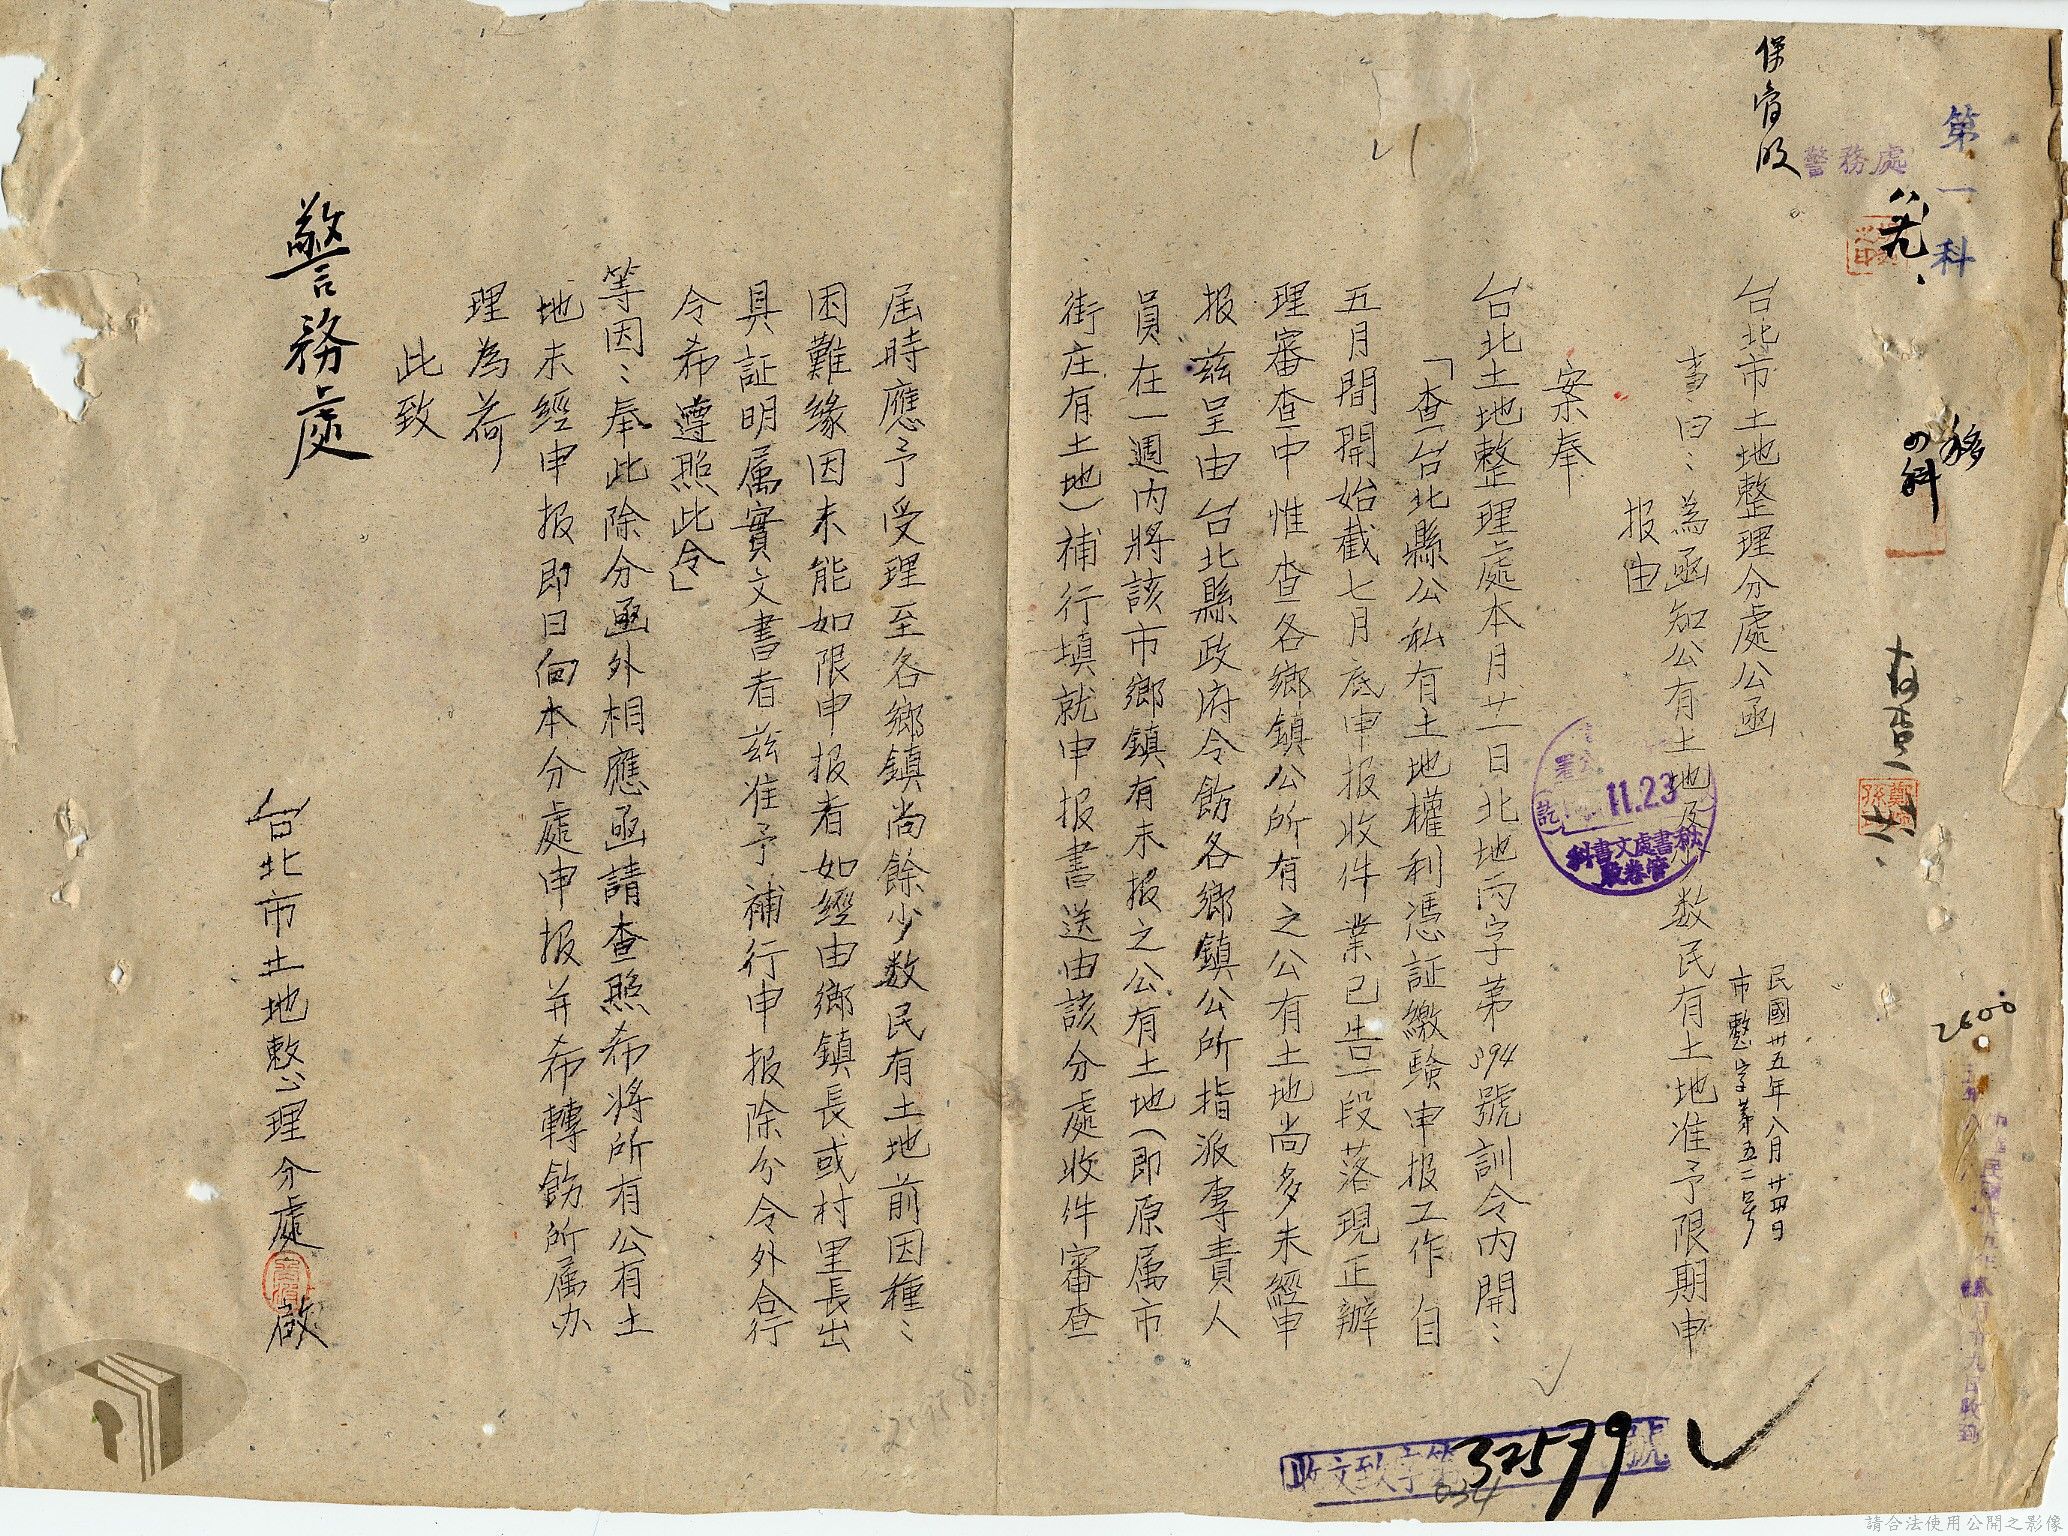 第一科
警務處
移
四科
2600
台北市土地整理分處公函
民國卅五年八月廿四日
市整字第五二号
事由：為函知公有土地及少数民有土地准予限期申
报由
案奉
台北土地整理處本月廿一日北地丙字第394號訓令内開：
「查台北縣公私有土地權利憑証繳驗申报工作自
五月間開始截七月底申报收件業已告一段落現正辦
理審查中惟查各鄉鎮公所有之公有土地尚多未經申
报兹呈由台北縣政府令飭各鄉鎮公所指派專責人
員在一週内將該市鄉鎮有未报之公有土地（即原属市
街庄有土地）補行填就申报書送由該分處收件審查
屆時應予受理至各鄉鎮尚餘少数民有土地前因種：
困難缘因未能如限申报者如經由鄉鎮長或村里長出
具証明属實文書者兹准予補行申报除分令外合行
令希遵照此令」
等因：奉此除分函外相應函請查照希將所有公有土
地未經申报即日向本分處申报并希轉飭所属办
理為荷
此致
警務處
台北市土地整理分處啟
11.23
秘書處文書科
管卷股
收文致字第32579號
034
25958
請合法使用公開之影像